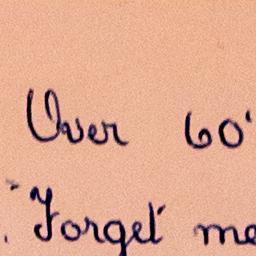 Over 60'
Forget me